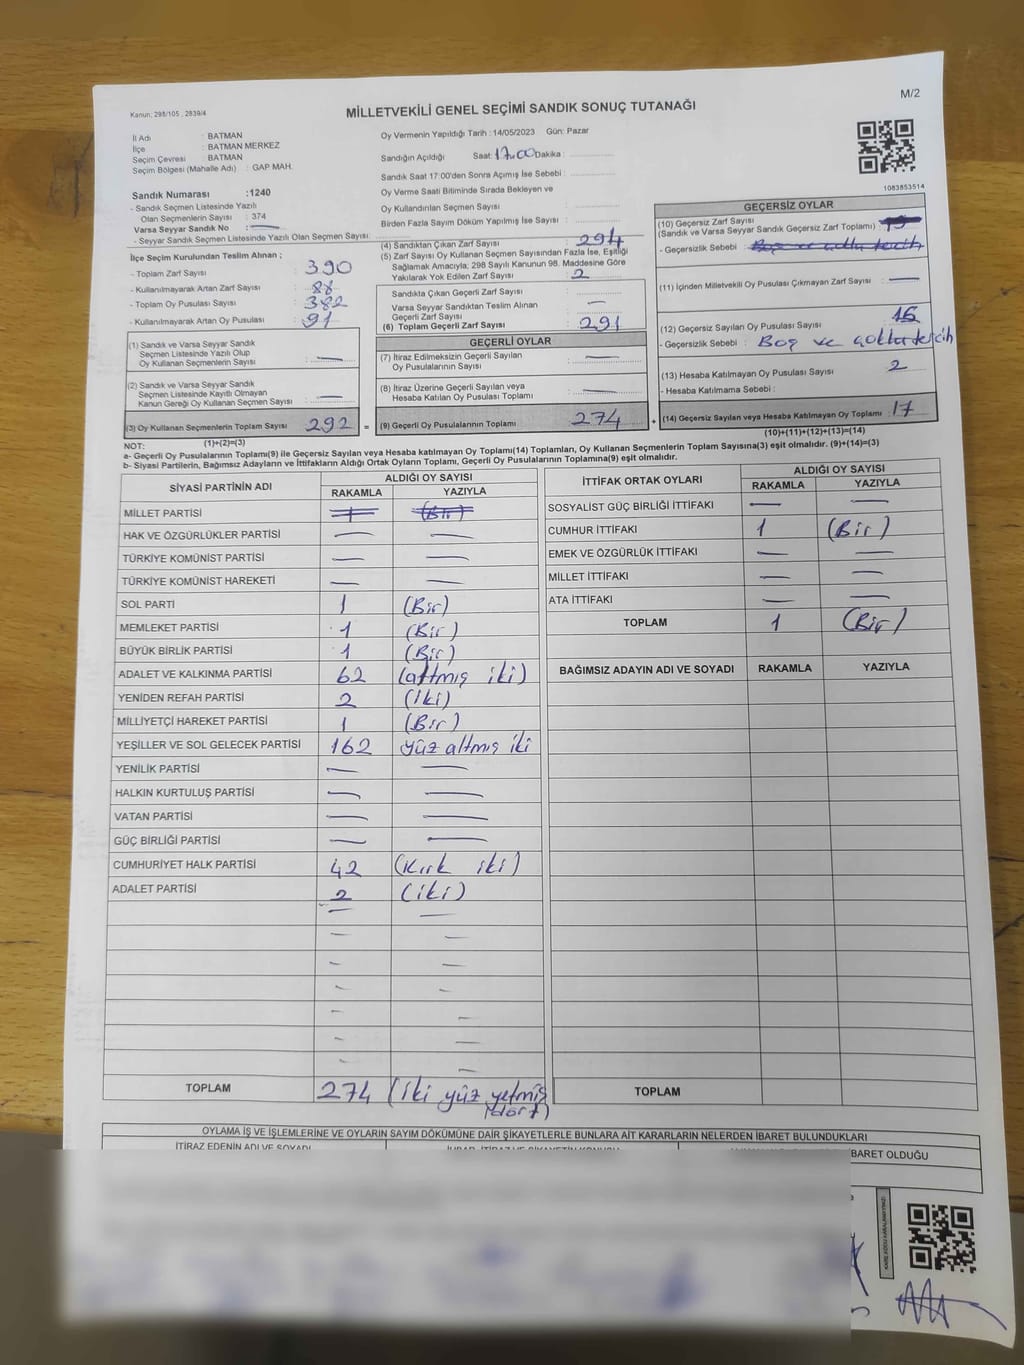 M/2
Kanun: 298/105 , 2839/4
MİLLETVEKİLİ GENEL SEÇİMİ SANDIK SONUÇ TUTANAĞI
İl Adı : BATMAN
İlçe : BATMAN MERKEZ
Seçim Çevresi : BATMAN
Seçim Bölgesi (Mahalle Adı) : GAP MAH.
Sandık Numarası :1240
- Sandık Seçmen Listesinde Yazılı
Olan Seçmenlerin Sayısı : 374
Varsa Seyyar Sandık No : —
- Seyyar Sandık Seçmen Listesinde Yazılı Olan Seçmen Sayısı:
İlçe Seçim Kurulundan Teslim Alınan ;
- Toplam Zarf Sayısı : 390
- Kullanılmayarak Artan Zarf Sayısı : 88
- Toplam Oy Pusulası Sayısı : 382
- Kullanılmayarak Artan Oy Pusulası : 91
(1) Sandık ve Varsa Seyyar Sandık
Seçmen Listesinde Yazılı Olup
Oy Kullanan Seçmenlerin Sayısı : —
(2) Sandık ve Varsa Seyyar Sandık
Seçmen Listesinde Kayıtlı Olmayan
Kanun Gereği Oy Kullanan Seçmen Sayısı : —
(3) Oy Kullanan Seçmenlerin Toplam Sayısı : 292 =
Oy Vermenin Yapıldığı Tarih : 14/05/2023 Gün: Pazar
Sandığın Açıldığı Saat: 17.00 Dakika :
Sandık Saat 17:00'den Sonra Açımış İse Sebebi :
Oy Verme Saati Bitiminde Sırada Bekleyen ve
Oy Kullandırılan Seçmen Sayısı :
Birden Fazla Sayım Döküm Yapılmış İse Sayısı :
(4) Sandıktan Çıkan Zarf Sayısı : 294
(5) Zarf Sayısı Oy Kullanan Seçmen Sayısından Fazla İse, Eşitliği
Sağlamak Amacıyla, 298 Sayılı Kanunun 98. Maddesine Göre
Yakılarak Yok Edilen Zarf Sayısı : 2
Sandıkta Çıkan Geçerli Zarf Sayısı :
Varsa Seyyar Sandıktan Teslim Alınan
Geçerli Zarf Sayısı : —
(6) Toplam Geçerli Zarf Sayısı : 291
GEÇERLİ OYLAR
(7) İtiraz Edilmeksizin Geçerli Sayılan
Oy Pusulalarının Sayısı : —
(8) İtiraz Üzerine Geçerli Sayılan veya
Hesaba Katılan Oy Pusulası Toplamı : —
(9) Geçerli Oy Pusulalarının Toplamı : 274 +
1083853514
GEÇERSİZ OYLAR
(10) Geçersiz Zarf Sayısı
(Sandık ve Varsa Seyyar Sandık Geçersiz Zarf Toplamı) :
- Geçersizlik Sebebi : Boş ve çoklu tercih
(11) İçinden Milletvekili Oy Pusulası Çıkmayan Zarf Sayısı : —
(12) Geçersiz Sayılan Oy Pusulası Sayısı :
- Geçersizlik Sebebi : Boş ve çoklu tercih
(13) Hesaba Katılmayan Oy Pusulası Sayısı : 2
- Hesaba Katılmama Sebebi :
(14) Geçersiz Sayılan veya Hesaba Katılmayan Oy Toplamı : 17
NOT: (1)+(2)=(3)
(10)+(11)+(12)+(13)=(14)
a- Geçerli Oy Pusulalarının Toplamı(9) ile Geçersiz Sayılan veya Hesaba katılmayan Oy Toplamı(14) Toplamları, Oy Kullanan Seçmenlerin Toplam Sayısına(3) eşit olmalıdır. (9)+(14)=(3)
b- Siyasi Partilerin, Bağımsız Adayların ve İttifakların Aldığı Ortak Oyların Toplamı, Geçerli Oy Pusulalarının Toplamına(9) eşit olmalıdır.
SİYASİ PARTİNİN ADI ALDIĞI OY SAYISI
RAKAMLA YAZIYLA
MİLLET PARTİSİ 1 (Bir)
HAK VE ÖZGÜRLÜKLER PARTİSİ — —
TÜRKİYE KOMÜNİST PARTİSİ — —
TÜRKİYE KOMÜNİST HAREKETİ — —
SOL PARTİ 1 (Bir)
MEMLEKET PARTİSİ 1 (Bir)
BÜYÜK BİRLİK PARTİSİ 1 (Bir)
ADALET VE KALKINMA PARTİSİ 62 (altmış iki)
YENİDEN REFAH PARTİSİ 2 (İki)
MİLLİYETÇİ HAREKET PARTİSİ 1 (Bir)
YEŞİLLER VE SOL GELECEK PARTİSİ 162 yüz altmış iki
YENİLİK PARTİSİ — —
HALKIN KURTULUŞ PARTİSİ — —
VATAN PARTİSİ — —
GÜÇ BİRLİĞİ PARTİSİ — —
CUMHURİYET HALK PARTİSİ 42 (Kırk iki)
ADALET PARTİSİ 2 (iki)
TOPLAM 274 (İki yüz yetmiş
dört)
İTTİFAK ORTAK OYLARI ALDIĞI OY SAYISI
RAKAMLA YAZIYLA
SOSYALİST GÜÇ BİRLİĞİ İTTİFAKI — —
CUMHUR İTTİFAKI 1 (Bir)
EMEK VE ÖZGÜRLÜK İTTİFAKI — —
MİLLET İTTİFAKI — —
ATA İTTİFAKI — —
TOPLAM 1 (Bir)
BAĞIMSIZ ADAYIN ADI VE SOYADI RAKAMLA YAZIYLA
TOPLAM
OYLAMA İŞ VE İŞLEMLERİNE VE OYLARIN SAYIM DÖKÜMÜNE DAİR ŞİKAYETLERLE BUNLARA AİT KARARLARIN NELERDEN İBARET BULUNDUKLARI
İTİRAZ EDENİN ADI VE SOYADI
İBARET OLDUĞU